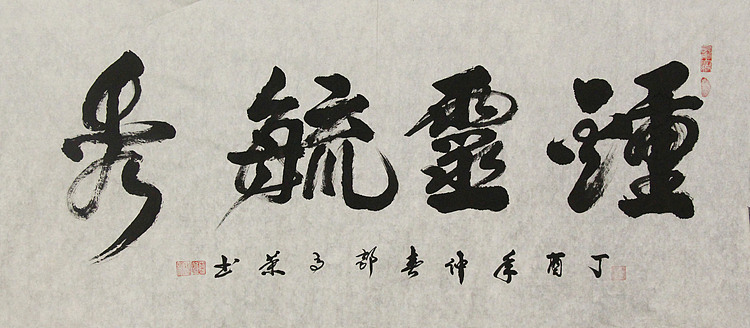 鍾靈毓秀
丁酉年仲春郭高荣书